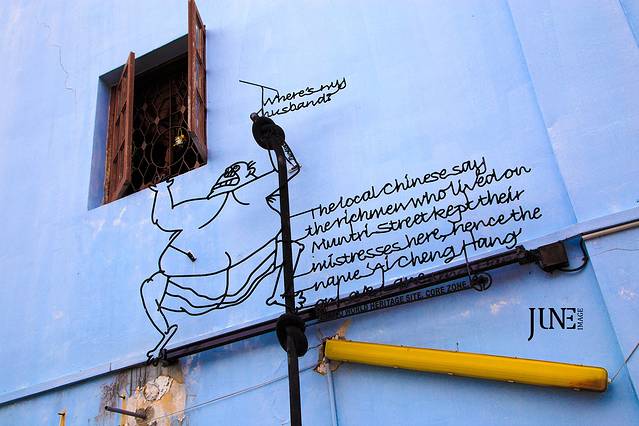 Where's my
husband?
The local Chinese say
the rich men who lived on
Muntri Street kept their
mistresses here, hence the
name 'Ai Cheng Hang
or Love Lane
WORLD HERITAGE SITE, CORE ZONE
JUNE
IMAGE